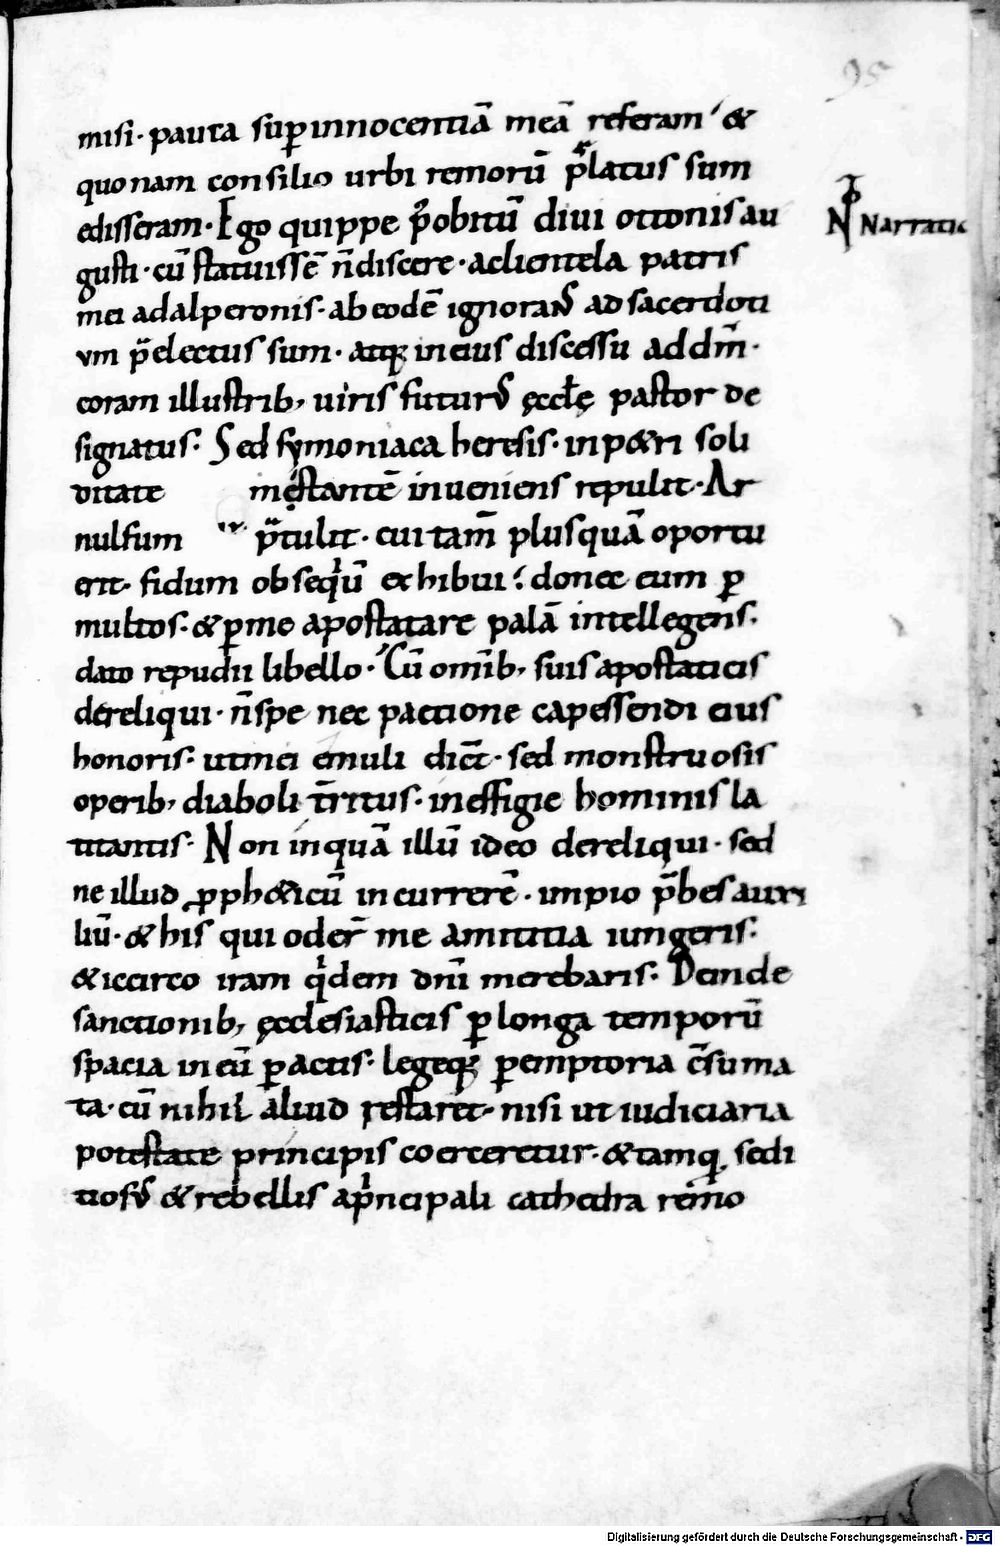 95
misi· pauca sup innocentiā meā referam· &
quonam consilio urbi remorū p̄latus sum
edisseram· Ego quippe p̄ obitū diui ottonis au
gusti· cū statuissē n̄ discere· a clientela patris
mei adalperonis· ab eodē ignorans ad sacerdoti
um p̄electus sum· atq; in eius discessu ad dn̄m·
coram illustrib; uiris futurus ęccłę pastor de
signatus· Sed symoniaca heresis· in p&ri soli
ditate me stantē inueniens repulit· Ar
nulfum p̄tulit· cui tam̄ plusquā oportu
erit· fidum obseqiū exhibui· donec eum p
multos· & p me apostatare palā intellegens·
dato repudii libello· Cū omīb; suis apostaticis
dereliqui· n̄ spe nec pactione capessendi eius
honoris· ut mei emuli dic̄t· sed monstruosis
operib; diaboli t̄ritus· in effigie hominis la
titantis· Non inquā illū ideo dereliqui· sed
ne illud pph&icū incurrerē· impio p̄bes auxi
liū· & his qui oder̄ me amicitia iungeris·
& iccirco iram qidem dn̄i merebaris· Deinde
sanctionib; ęcclesiasticis p longa temporū
spacia in eū pactis· legeq; pemptoria c̄suma
ta· cū nihil aliud restaret· nisi ut iudiciaria
potestate principis coerceretur· & tamq; sedi
tiosus & rebellis a pncipali cathedra remo
Narratio
Digitalisierung gefördert durch die Deutsche Forschungsgemeinschaft - DFG